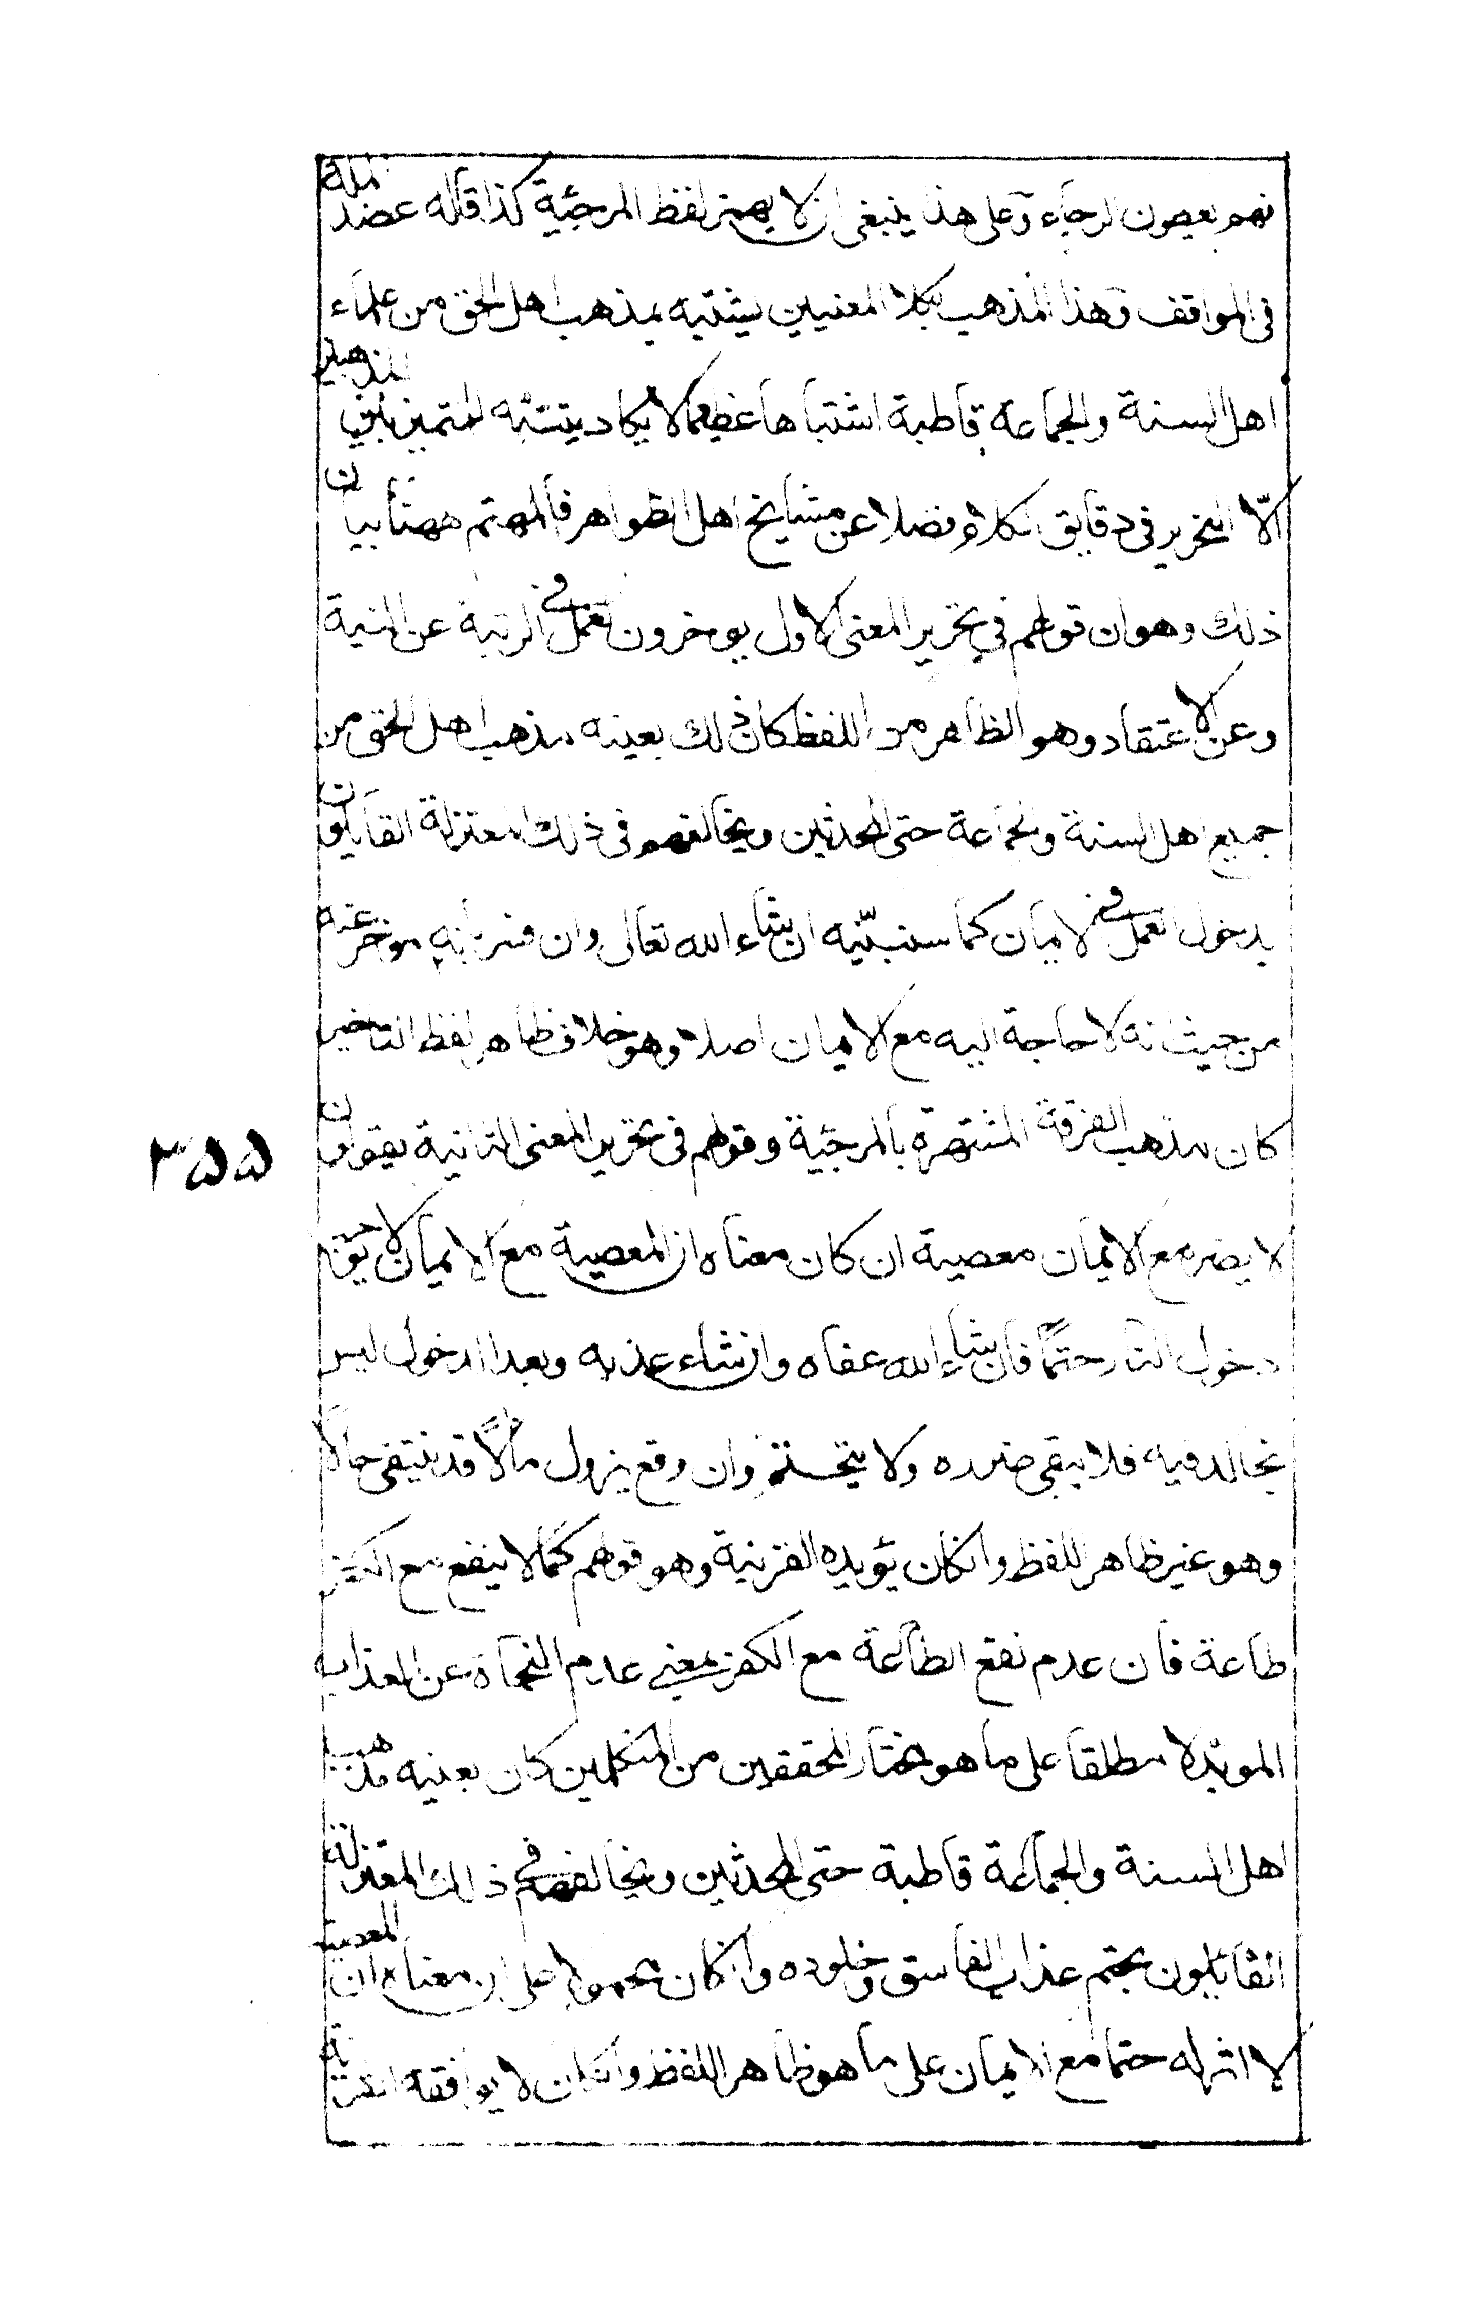 فهم يعطون الرجاء وعلى هذا ينبغي ان لا يهمز لفظ المرجئية كذا قاله عضد الملة
في المواقف وهذا المذهب بكلا المعنيين يشتبه بمذهب اهل الحق من علماء
اهل السنة والجماعة قاطبة اشتباها عظيما لا يكاد يتنبه للتميز بين المذهبين
الّا النحرير في دقايق الكلام فضلا عن مشايخ اهل الظواهر فالمهتم ههنا بيان
ذلك وهو ان قولهم في تحرير المعنى الاول يوخرون العمل في الرتبة عن النية
وعن الاعتقاد وهو الظاهر من اللفظ كان ذلك بعينه مذهب اهل الحق من
جميع اهل السنة والجماعة حتى المحدثين ويخالفهم في ذلك المعتزلة القايلون
بدخول العمل في الايمان كما سنبيّنه ان شاء الله تعالى وان فسر بانه موخر عنه
من حيث انه لا حاجة اليه مع الايمان اصلا وهو خلاف ظاهر لفظ التاخير
كان مذهب الفرقة المشتهرة بالمرجئية وقولهم في تحرير المعنى الثانية يقولون
لا يضر مع الايمان معصية ان كان معناه ان المعصية مع الايمان لا يوجب
دخول النار حتمًا فان شاء الله عفاه وان شاء عذبه وبعد الدخول ليس
بخالد فيه فلا يبقى ضرره ولا يتحتم وان وقع يزول مآلًا قد ينتفى حالًا
وهو غير ظاهر اللفظ وانكان يؤيده القرينة وهو قولهم كما لا ينفع مع الكفر
طاعة فان عدم نفع الطاعة مع الكفر بمعنى عدم النجاة عن العذاب
الموبد لا مطلقا على ما هو مختار المحققين من المتكلمين كان بعينه مذهب
اهل السنة والجماعة قاطبة حتى المحدثين ويخالفهم في ذلك المعتزلة
القائلون بحتم عذاب الفاسق وخلوده وان كان محمولا على ان معناه ان المعصية
لا اثر له حتما مع الايمان على ما هو ظاهر اللفظ وانكان لا يوافقه القرينة
٣٥٥